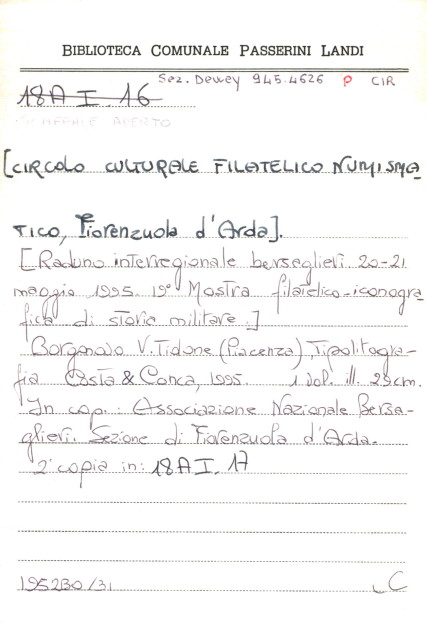 BIBLIOTECA COMUNALE PASSERINI LANDI
Sez. Dewey 945.4626 P CIR
18A I 16
GENERALE APERTO
[CIRCOLO CULTURALE FILATELICO NUMISMA
TICO, Fiorenzuola d'Arda].
[Raduno interregionale bersaglieri. 20-21
maggio 1995. 19° Mostra filatelico-iconogra
fica di storia militare.]
Borgonovo V. Tidone (Piacenza), Tipolitogra-
fia Costa & Conca, 1995. 1 vol. ill. 29cm.
In cop.: Associazione Nazionale Bersa-
glieri. Sezione di Fiorenzuola d'Arda.
2ª copia in: 18A I. 17
195230/31
C